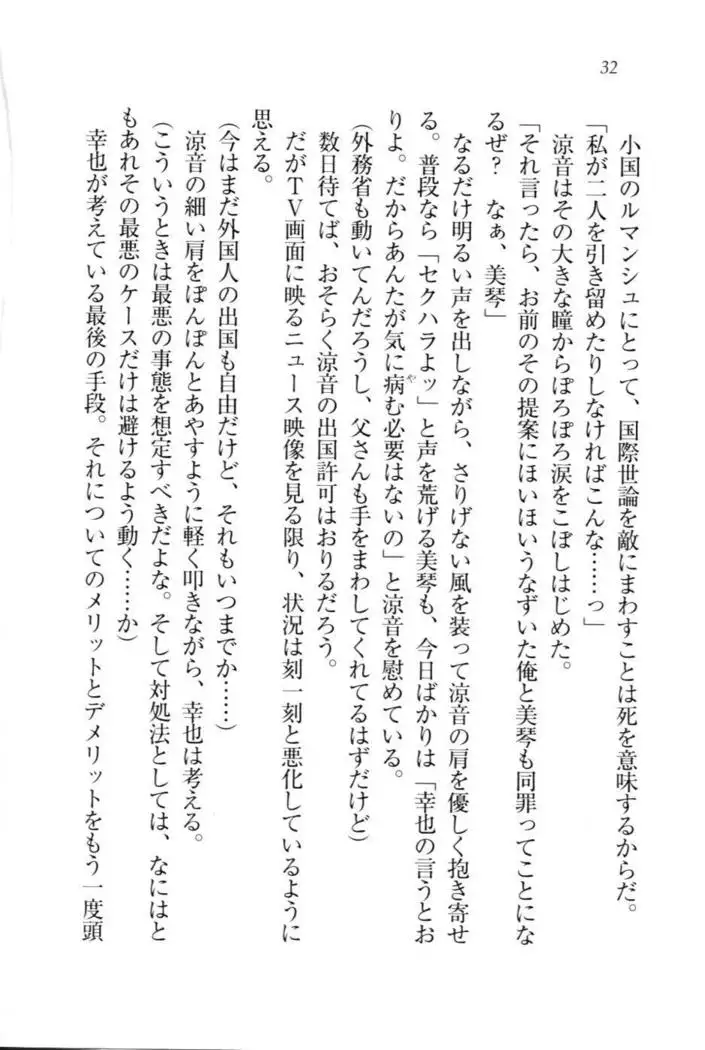 32
小国のルマンシュにとって、国際世論を敵にまわすことは死を意味するからだ。
「私が二人を引き留めたりしなければこんな……っ」
涼音はその大きな瞳からぽろぽろ涙をこぼしはじめた。
「それ言ったら、お前のその提案にほいほいうなずいた俺と美琴も同罪ってことにな
るぜ? なぁ、美琴」
なるだけ明るい声を出しながら、さりげない風を装って涼音の肩を優しく抱き寄せ
る。普段なら「セクハラよッ」と声を荒げる美琴も、今日ばかりは「幸也の言うとお
りよ。だからあんたが気に病む必要はないの」と涼音を慰めている。
(外務省も動いてんだろうし、父さんも手をまわしてくれてるはずだけど)
数日待てば、おそらく涼音の出国許可はおりるだろう。
だがTV画面に映るニュース映像を見る限り、状況は刻一刻と悪化しているように
思える。
(今はまだ外国人の出国も自由だけど、それもいつまでか……)
涼音の細い肩をぽんぽんとあやすように軽く叩きながら、幸也は考える。
(こういうときは最悪の事態を想定すべきだよな。そして対処法としては、なにはと
もあれその最悪のケースだけは避けるよう動く……か)
幸也が考えている最後の手段。それについてのメリットとデメリットをもう一度頭